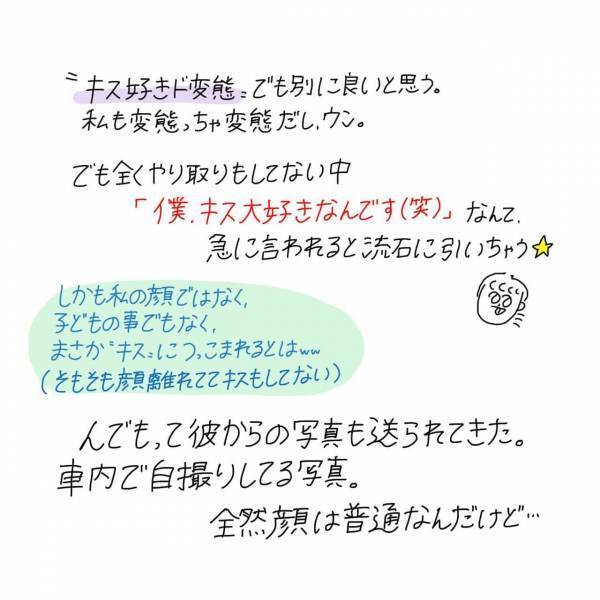 〝キス好きド変態〟でも別に良いと思う。
私も変態っちゃ変態だし、ウン。
でも全くやり取りもしてない中
「僕、キス大好きなんです(笑)」なんて、
急に言われると流石に引いちゃう
しかも私の顔ではなく、
子どもの事でもなく、
まさか〝キス〟につっこまれるとはww
(そもそも顔離れててキスもしてない)
んでもって彼からの写真も送られてきた。
車内で自撮りしてる写真。
全然顔は普通なんだけど…